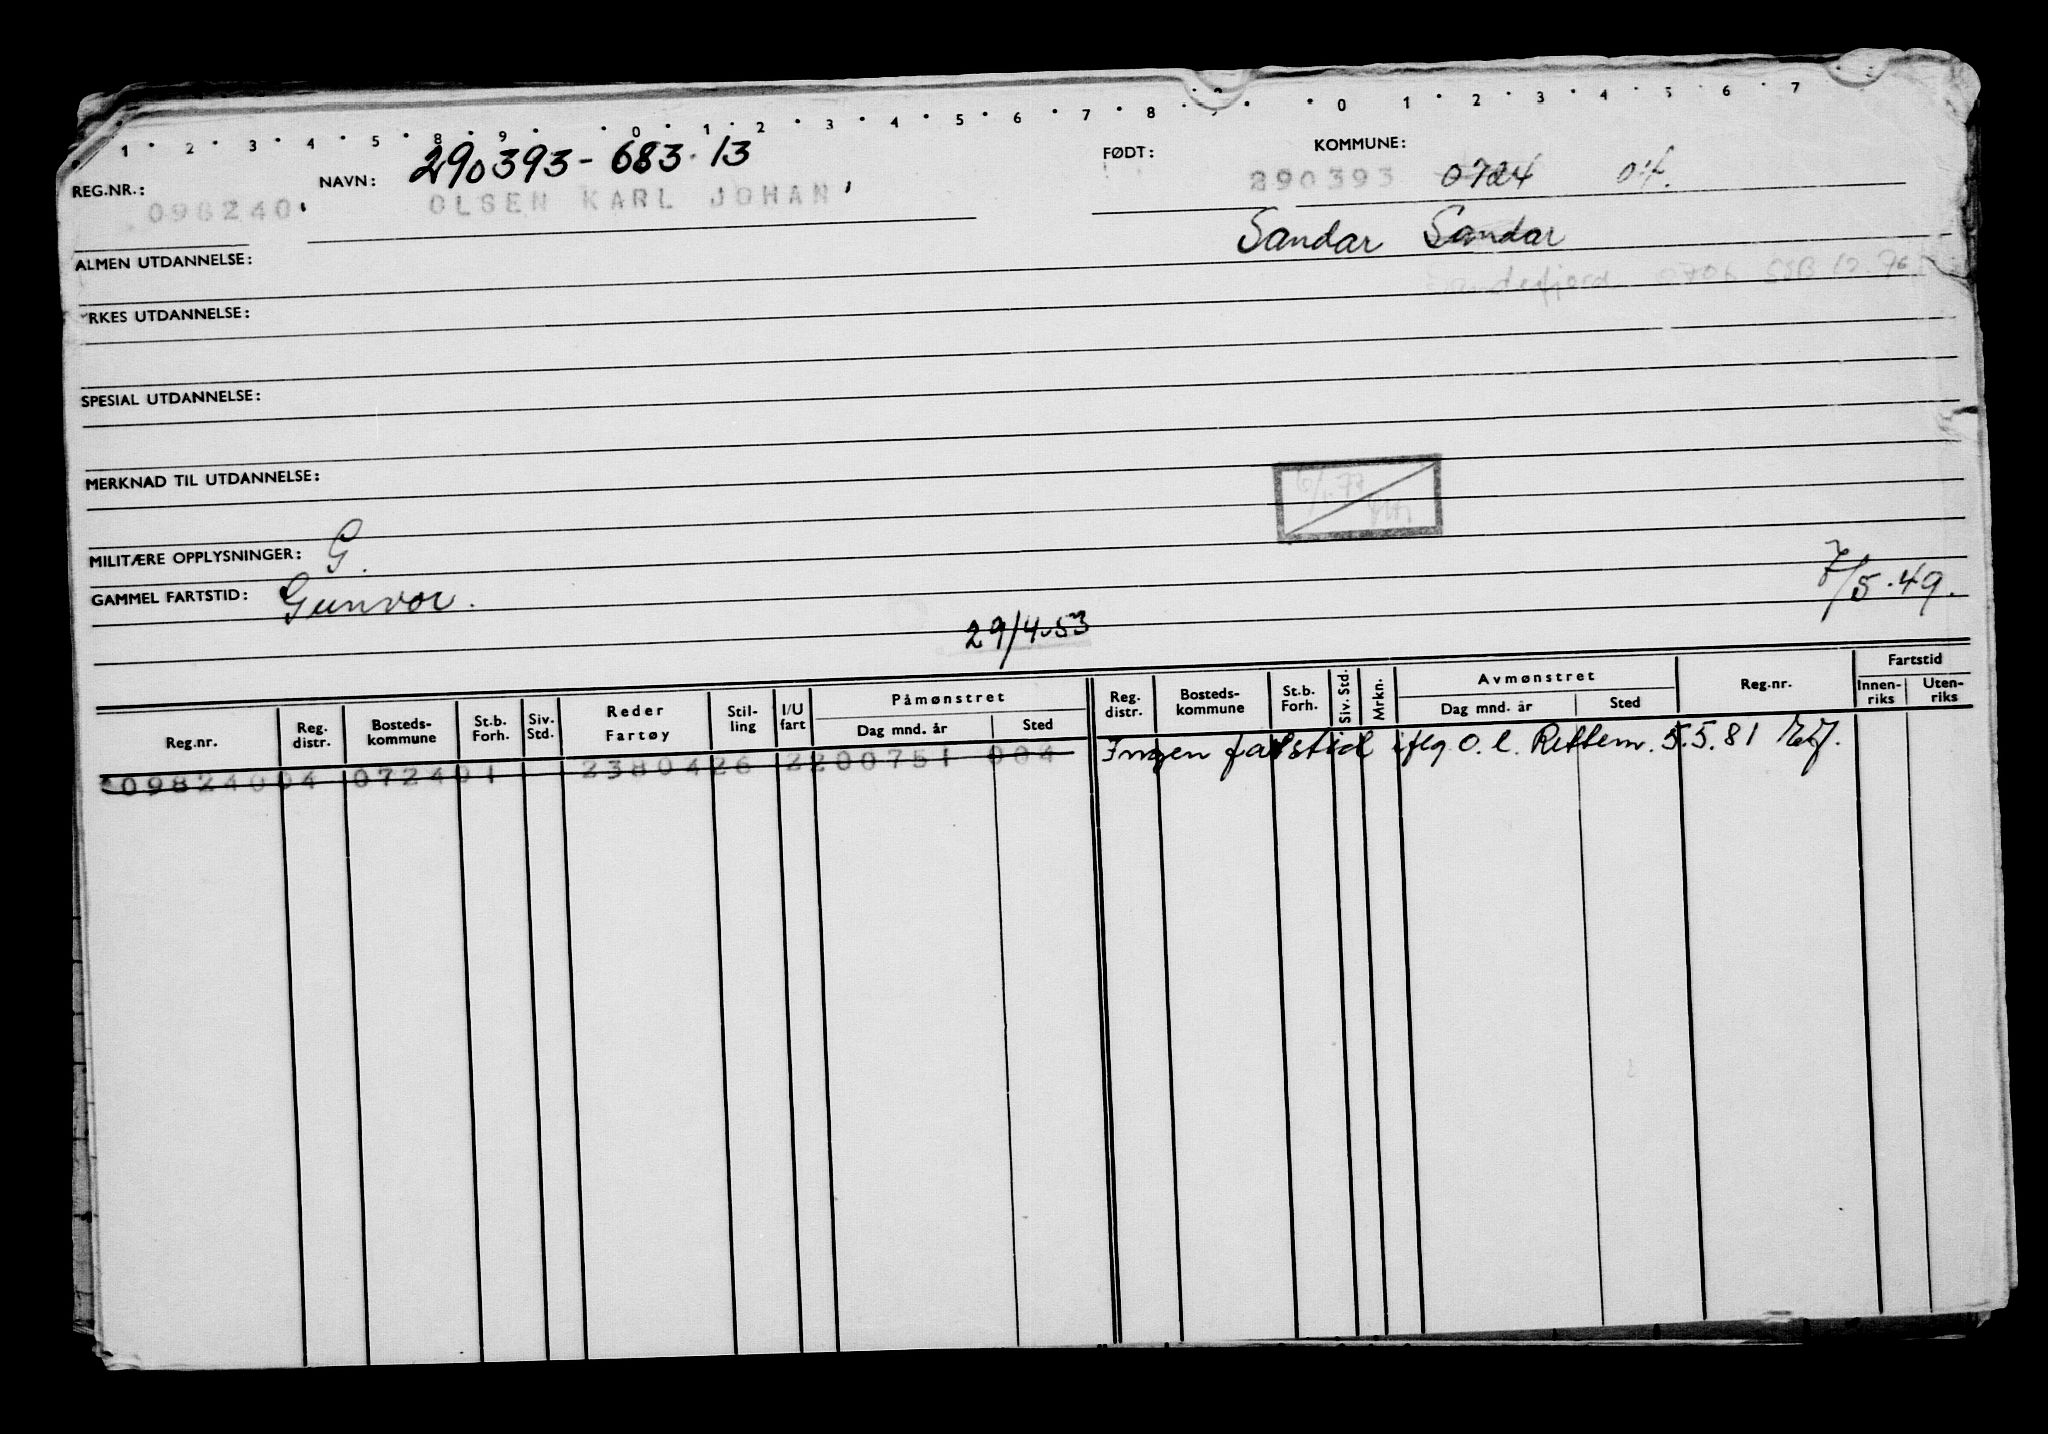 1 · 2 · 3 · 4 · 5 · 8 · 9 · · 0 · 1 · 2 · 3 · 4 · 5 · 6 · 7 · 8 · · 0 1 · 2 · 3 · 4 · 5 · 6 · 7
REG.NR.: NAVN: 290393-683.13 FØDT: KOMMUNE:
098240. OLSEN KARL JOHAN, 290393 0724 04.
Sandar Sandar
ALMEN UTDANNELSE:
Sandefjord 0706 12.76
YRKES UTDANNELSE:
SPESIAL UTDANNELSE:
MERKNAD TIL UTDANNELSE:
6/1.77
MILITÆRE OPPLYSNINGER: G.
GAMMEL FARTSTID: Gunvor. 7/5.49.
29/4-53
Reg.nr. Reg. distr. Bosteds-kommune St.b. Forh. Siv. Std. Reder Fartøy Stil-ling I/U fart Påmønstret Dag mnd. år Sted Reg. distr. Bosteds-kommune St.b. Forh. Siv. Std. Mrkn. Avmønstret Dag mnd. år Sted Reg.nr. Fartstid Innen-riks Uten-riks
09824004 072401 2380426 2200751 004 Ingen fartstid iflg O.l. Rettem. 5.5.81